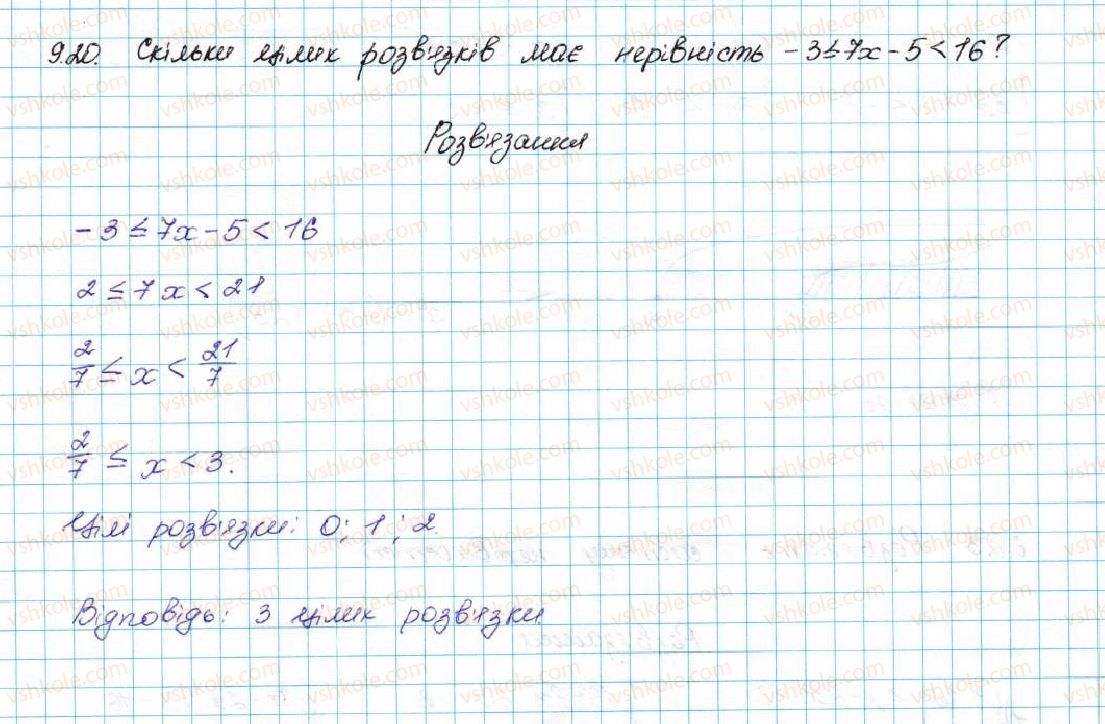 9.20. Скільки цілих розв'язків має нерівність -3≤7x-5<16?
Розв'язання
-3≤7x-5<16
2≤7x<21
2/7≤x<21/7
2/7≤x<3.
Цілі розв'язки: 0; 1; 2.
Відповідь: 3 цілих розв'язки